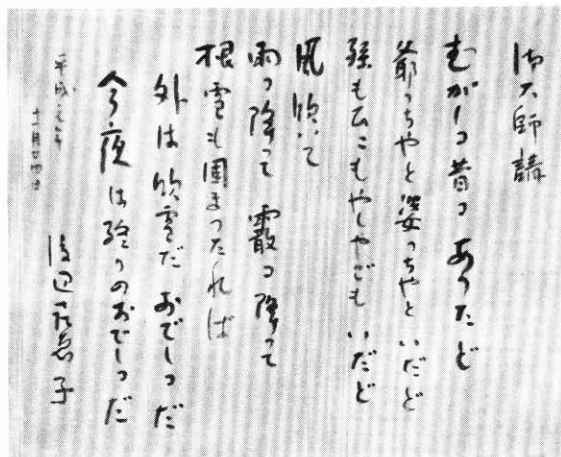 御大師講
むがしコ昔コ あったど
爺っちゃと婆っちゃと いだど
孫もひこもやしゃごも いだど
風吹いて
雨コ降って 霰コ降って
根雪も固まったれば
外は吹雪だ おでしコだ
今夜は終りのおでしコだ
平成元年
十二月廿四日
渡辺 子